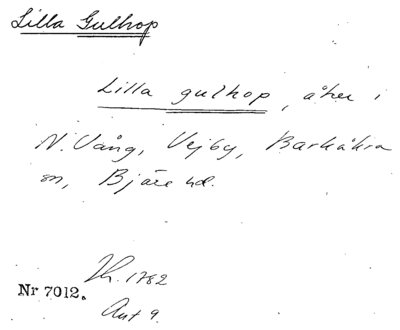 Lilla Gulhop
Lilla gulhop, åker i
N. Vång, Vejby, Barkåkra
sn, Bjäre hd.
Lh. 1782
Nr 7012.
Akt 9.